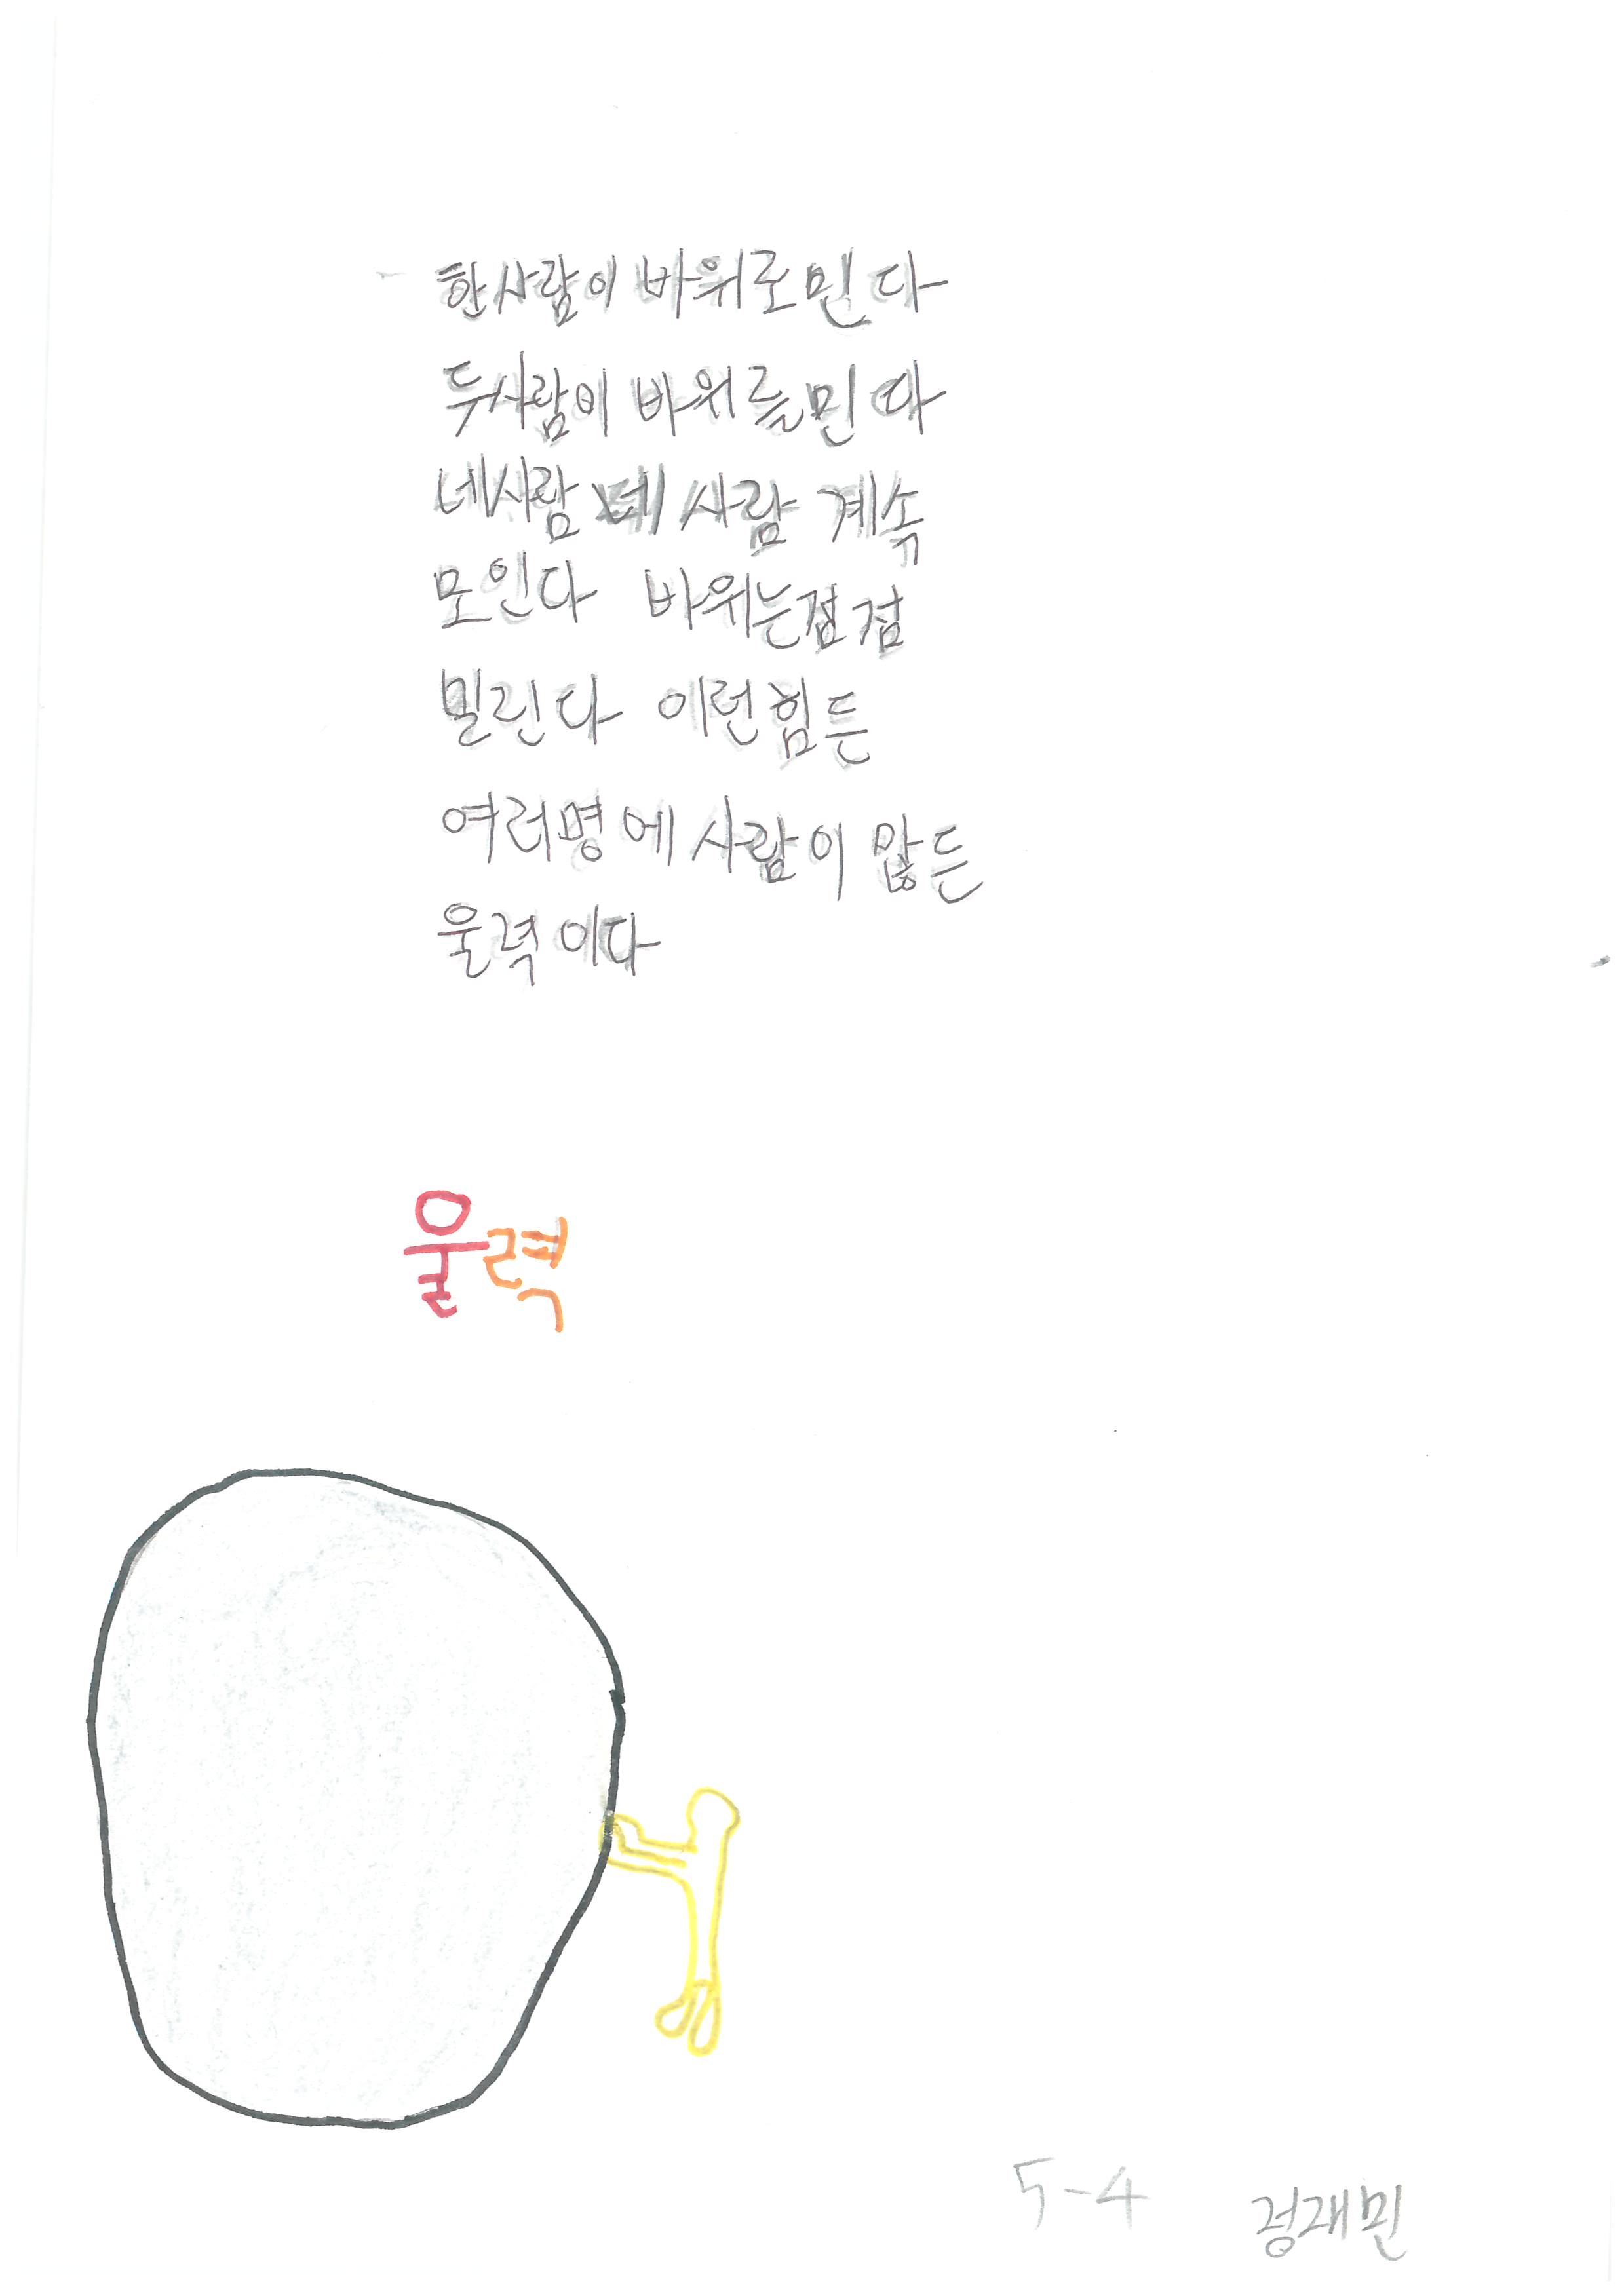 한사람이 바위로민다
두사람이 바위를민다
네사람 네 사람 계속
모인다 바위는점점
밀린다 이런힘든
여러명에 사람이 많든
울력이다
울력
5-4 정재민